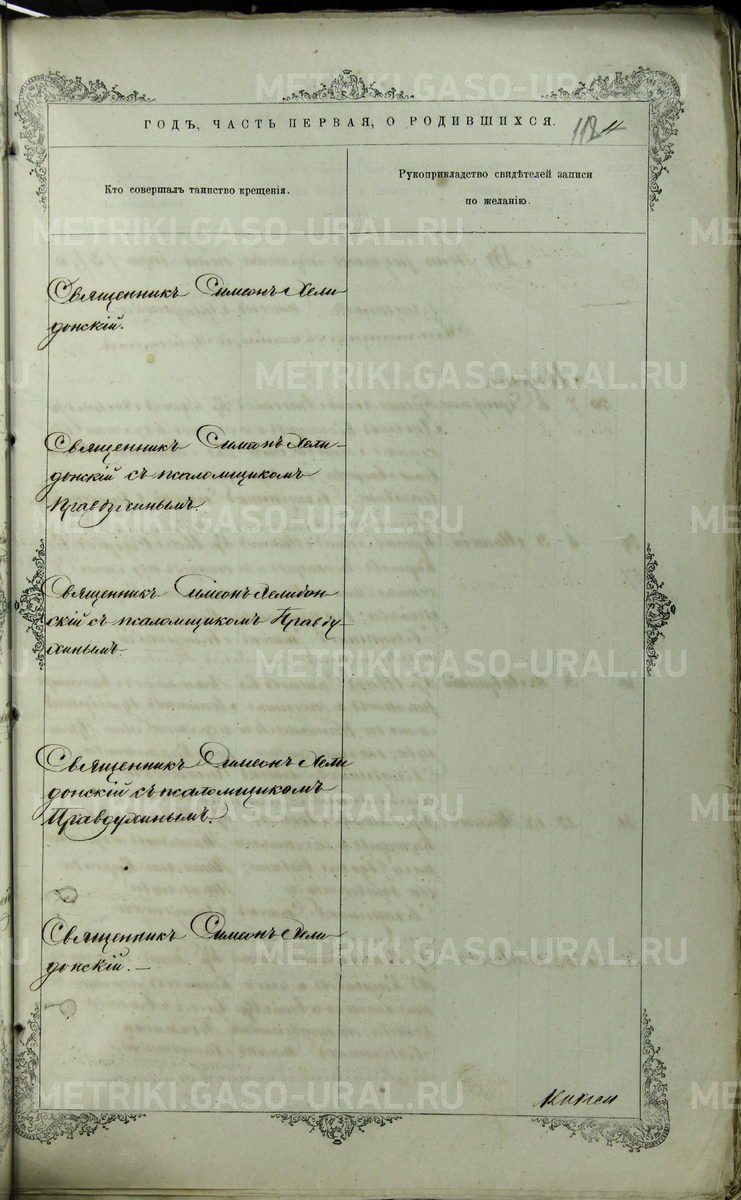 METRIKI.GASO-URAL.RU
ГОДЪ, ЧАСТЬ ПЕРВАЯ, О РОДИВШИХСЯ.
Кто совершалъ таинство крещенія.
Рукоприкладство свидѣтелей записи
по желанію.
Священникъ Симеонъ Хели
донскій.
Священникъ Симеонъ Хели-
донскій съ псаломщикомъ
Правдухинымъ.
Священникъ Симеонъ Хелидон
скій съ псаломщикомъ Правду-
хинымъ.
Священникъ Симеонъ Хели
донскій съ псаломщикомъ
Правдухинымъ.
Священникъ Симеонъ Хели
донскій. —